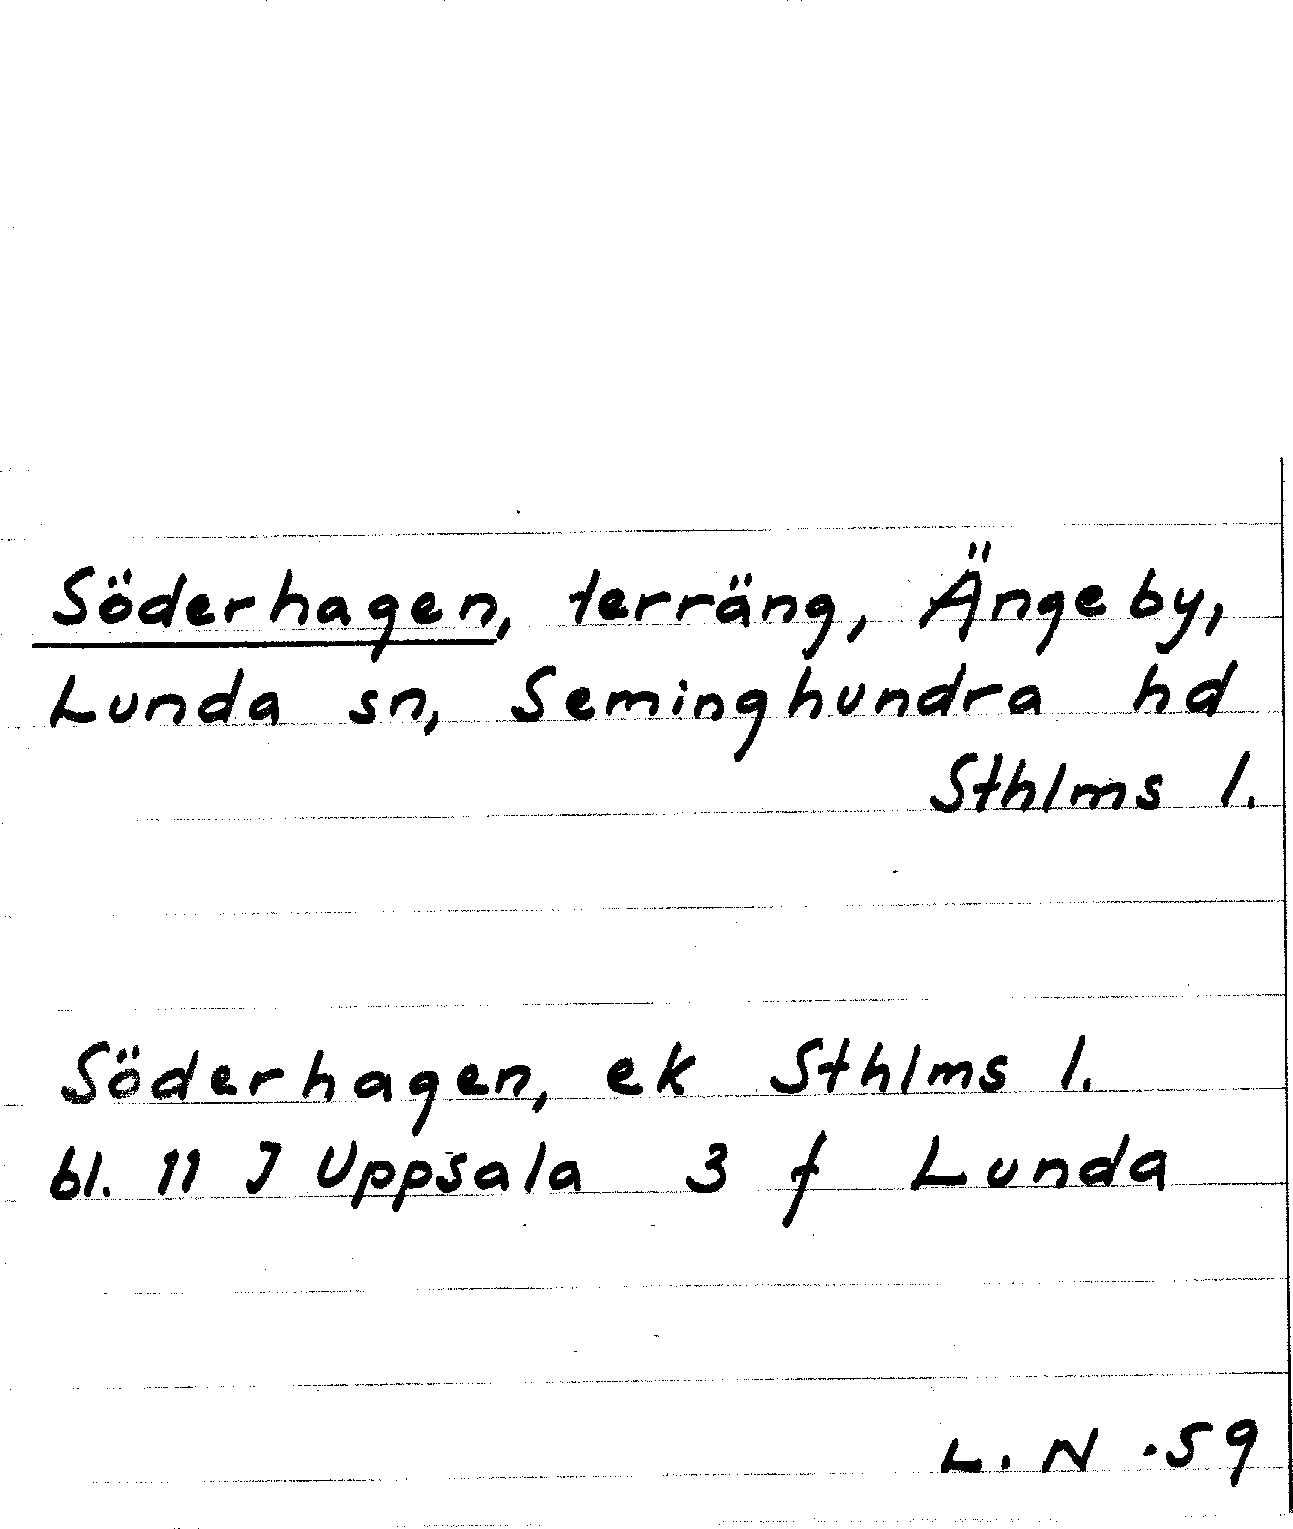 Söderhagen, terräng, Ängeby,
Lunda sn, Seminghundra hd
Sthlms l.
Söderhagen, ek Sthlms l.
bl. 11 J Uppsala 3 f Lunda
L. N .59